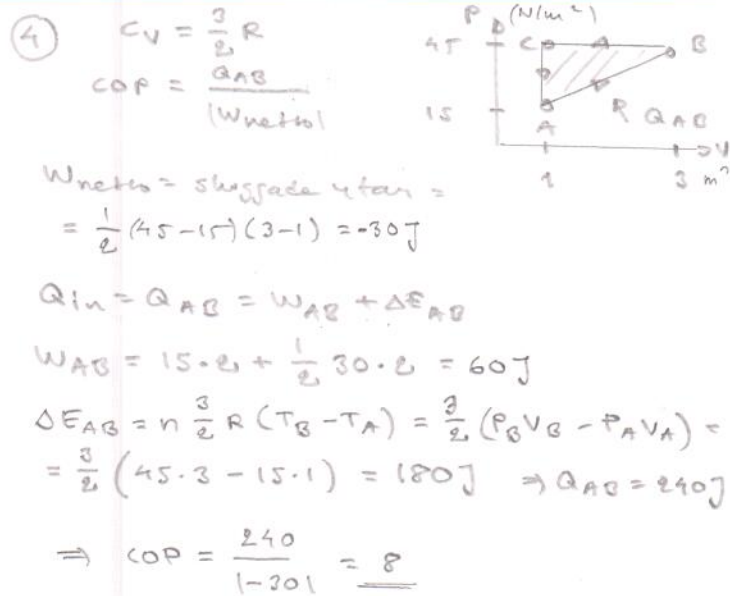 4
C_V = 3/2 R
COP = Q_AB / |W_netto|
P (N/m²)
45 C B
15 A R Q_AB
1 3 m³ V
W_netto = skuggade ytan =
= 1/2 (45-15)(3-1) = -30 J
Q_in = Q_AB = W_AB + ΔE_AB
W_AB = 15·2 + 1/2 30·2 = 60 J
ΔE_AB = n 3/2 R (T_B - T_A) = 3/2 (P_B V_B - P_A V_A) =
= 3/2 (45·3 - 15·1) = 180 J ⇒ Q_AB = 240 J
⇒ COP = 240 / |-30| = 8